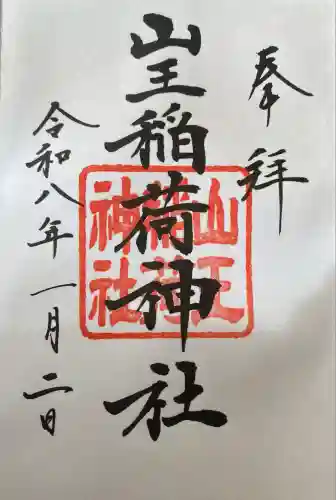 奉拝
山王稲荷神社
山王
稲荷
神社
令和八年一月二日